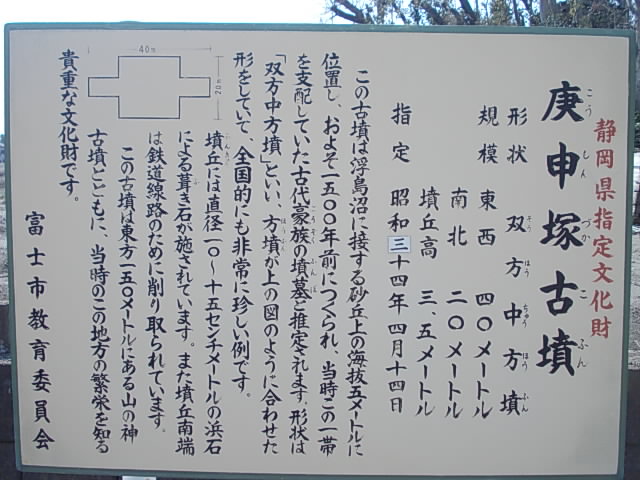 静岡県指定文化財
庚申塚古墳
こうしんづかこふん
形状 双方中方墳
そうほうちゅうほうふん
規模 東西 四〇メートル
南北 二〇メートル
墳丘高 三、五メートル
指定 昭和三十四年四月十四日
この古墳は浮島沼に接する砂丘上の海抜五メートルに
位置し、およそ一五〇〇年前につくられ、当時この一帯
を支配していた古代豪族の墳墓と推定されます。形状は
ごうぞく ふんぼ
「双方中方墳」といい、方墳が上の図のように合わせた
ほうふん
形をしていて、全国的にも非常に珍しい例です。
墳丘には直径一〇〜十五センチメートルの浜石
ふんきゅう
による葺き石が施されています。また墳丘南端
ふ
は鉄道線路のために削り取られています。
この古墳は東方一五〇メートルにある山の神
古墳とともに、当時のこの地方の繁栄を知る
貴重な文化財です。
40m
20m
富士市教育委員会